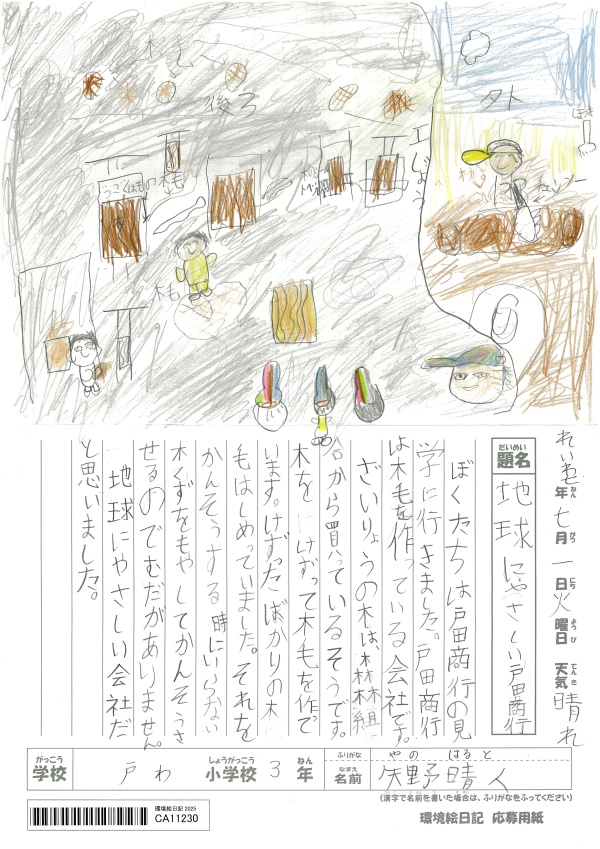 木毛
後ろ
外
ほうき
工じょう
木毛
木毛
れいわ7年七月一日火曜日 天気 晴れ
ねん
がつ
にち
ようび
てんき
だいめい
題名
地球にやさしい戸田商行
ぼくたちは戸田商行の見
学に行きました。戸田商行
は木毛を作っている会社です。
ざいりょうの木は、森林組
合から買っているそうです。
木をけずって木毛を作って
います。けずったばかりの木
毛はしめっていました。それを
かんそうする時にいらない
木くずをもやしてかんそうさ
せるのでむだがありません。
地球にやさしい会社だ
と思いました。
がっこう
学校
戸わ
しょうがっこう
小学校
3
ねん
年
ふりがな
やの はると
なまえ
名前
矢野晴人
(漢字で名前を書いた場合は、ふりがなをふってください)
環境絵日記 2025
CA11230
環境絵日記 応募用紙